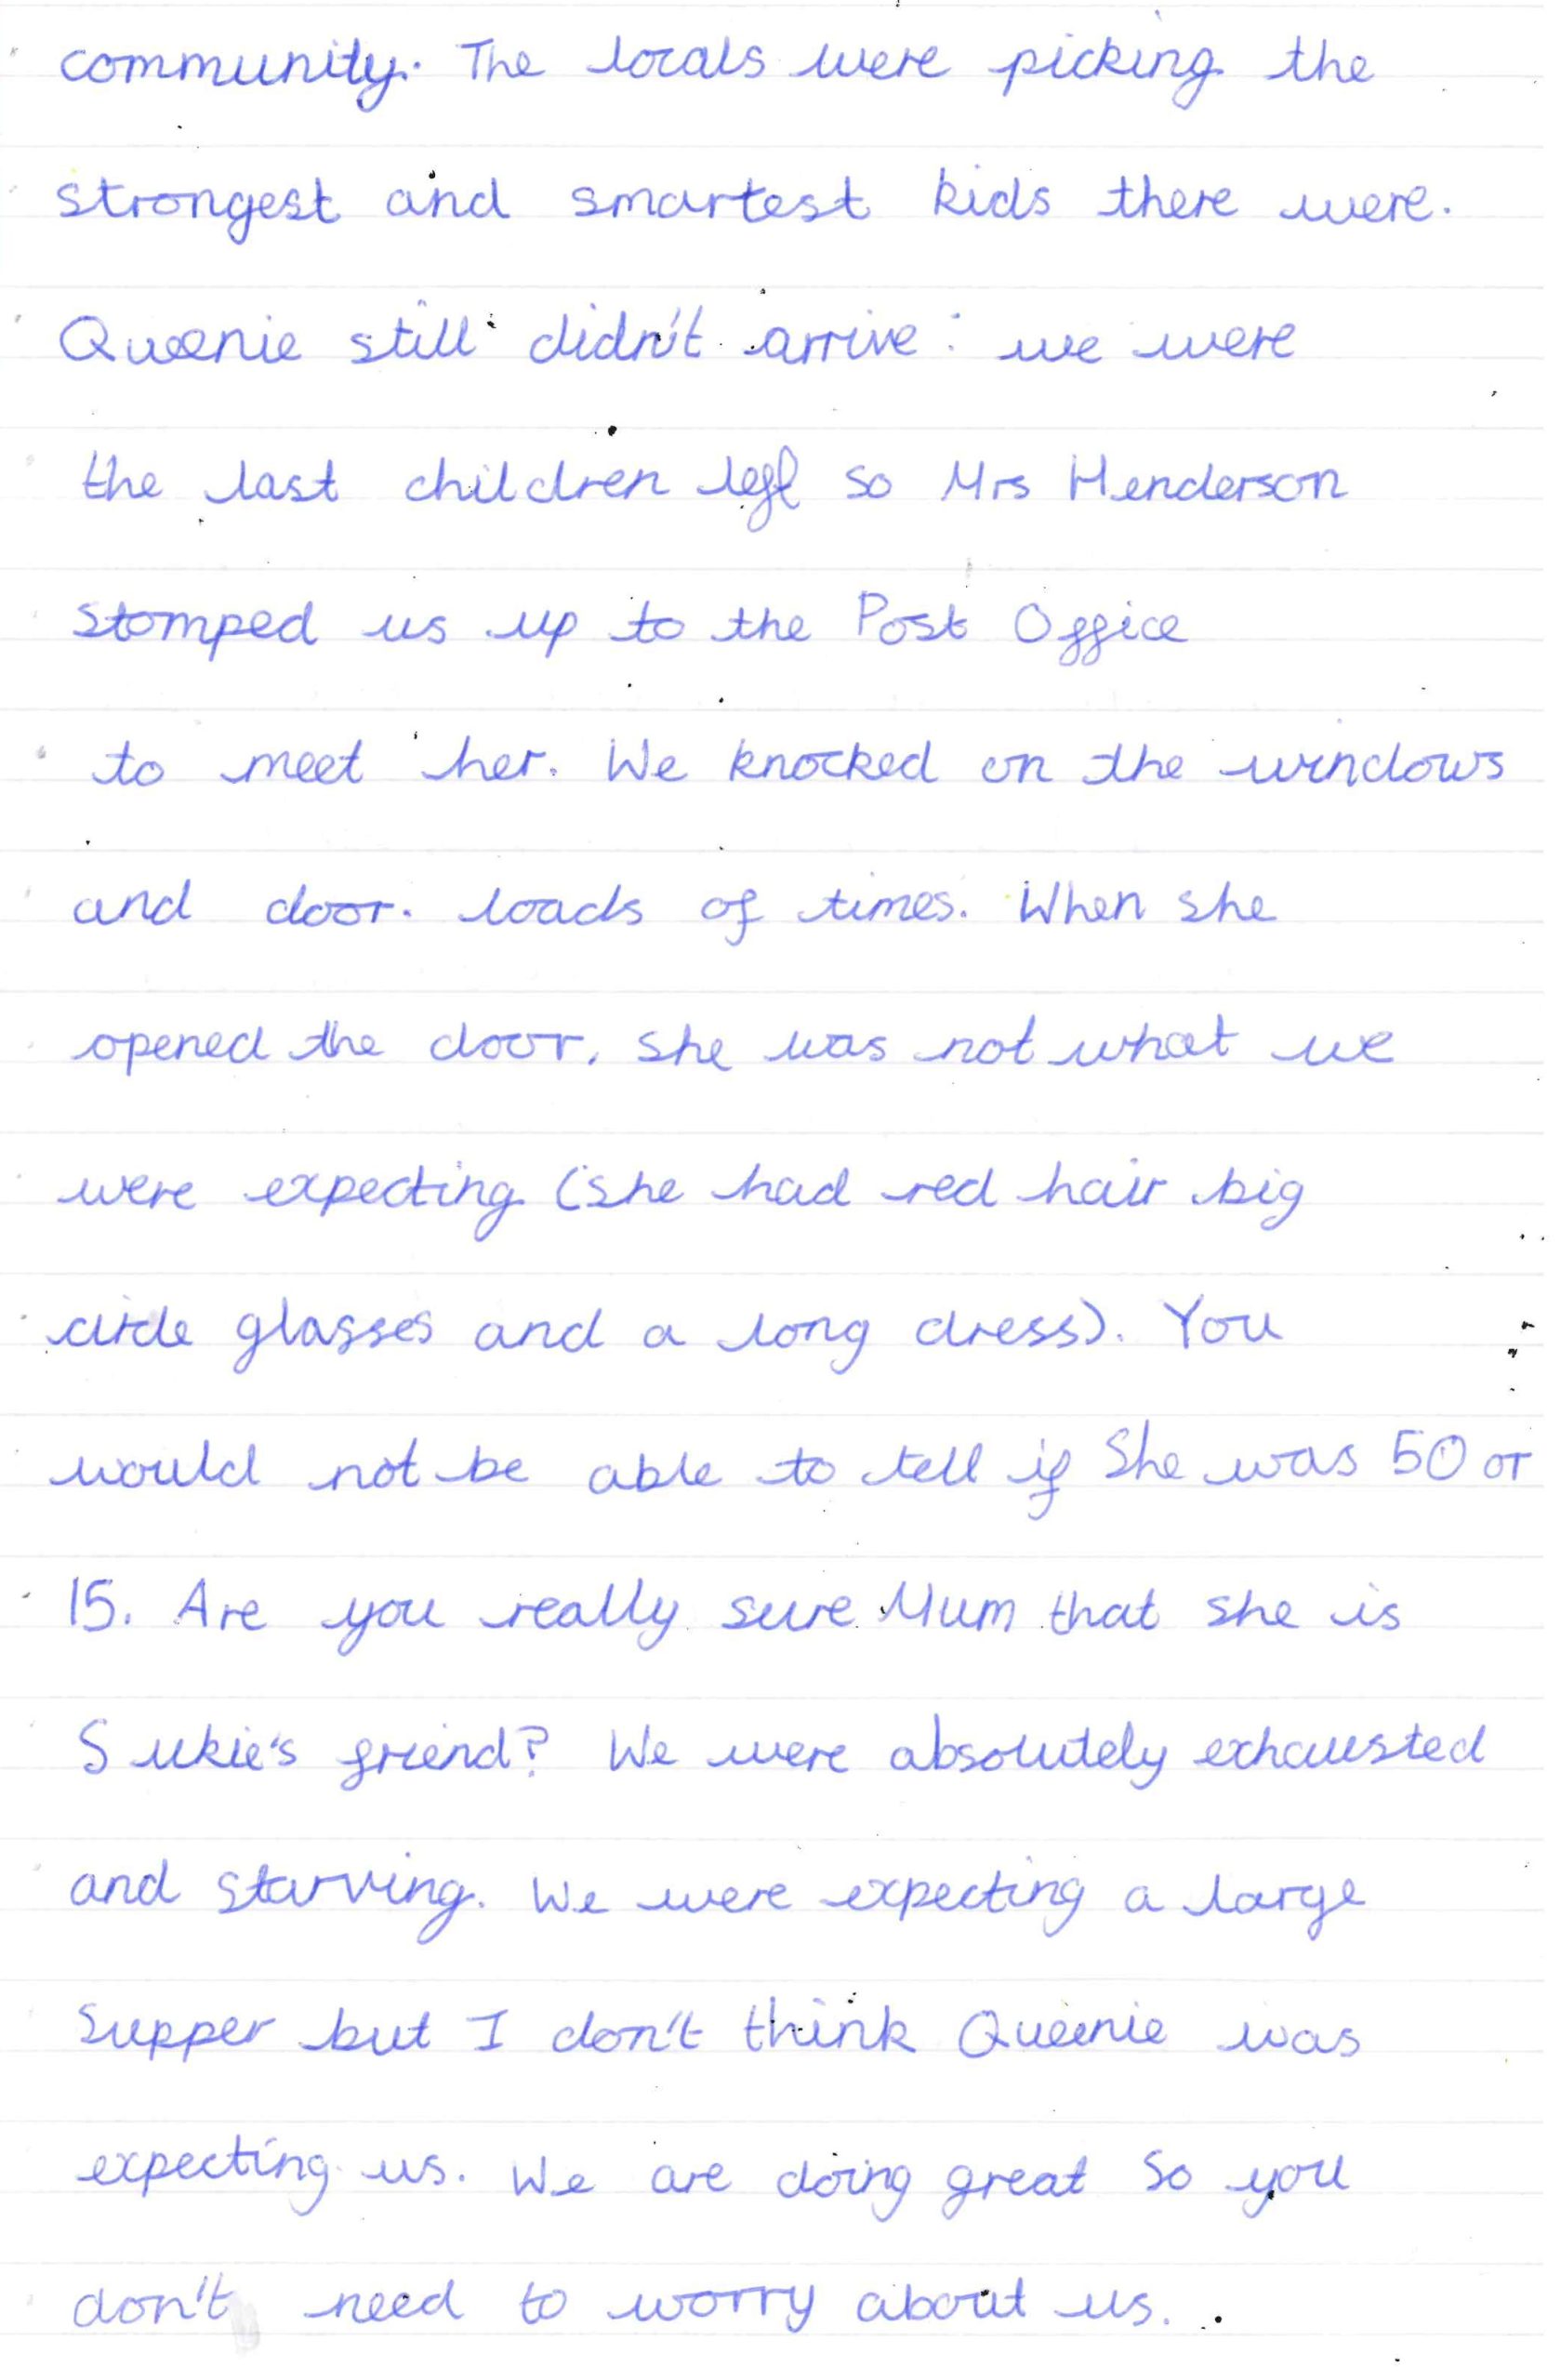 community. The locals were picking the
strongest and smartest kids there were.
Queenie still didn't arrive: we were
the last children left so Mrs Henderson
stomped us up to the Post Office
to meet her. We knocked on the windows
and door. loads of times. When she
opened the door, she was not what we
were expecting (she had red hair big
circle glasses and a long dress). You
would not be able to tell if She was 50 or
15. Are you really sure Mum that she is
Sukie's friend? We were absolutely exhausted
and starving. We were expecting a large
supper but I don't think Queenie was
expecting us. We are doing great so you
don't need to worry about us.